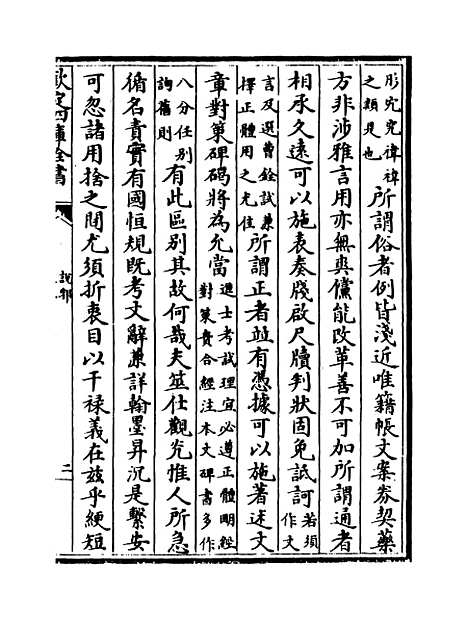 彤宂宄褘禕
之類是也
所謂俗者例皆淺近唯籍帳文案劵契藥
方非涉雅言用亦無爽儻能改革善不可加所謂通者
相承久遠可以施表奏牋啟尺牘判狀固免詆訶
若須
作文
言及選曹銓試兼
擇正體用之尤佳
所謂正者竝有憑據可以施著述文
章對策碑碣將為允當
選士考試理宜必遵正體明經
對策貴合經注本文碑書多作
八分任别
詢舊則
有此區别其故何哉夫筮仕觀光惟人所急
循名責實有國恒規既考文辭兼詳翰墨昇沉是繫安
可忽諸用捨之間尤須折衷目以干禄義在兹乎綆短
欽定四庫全書
說郛
二